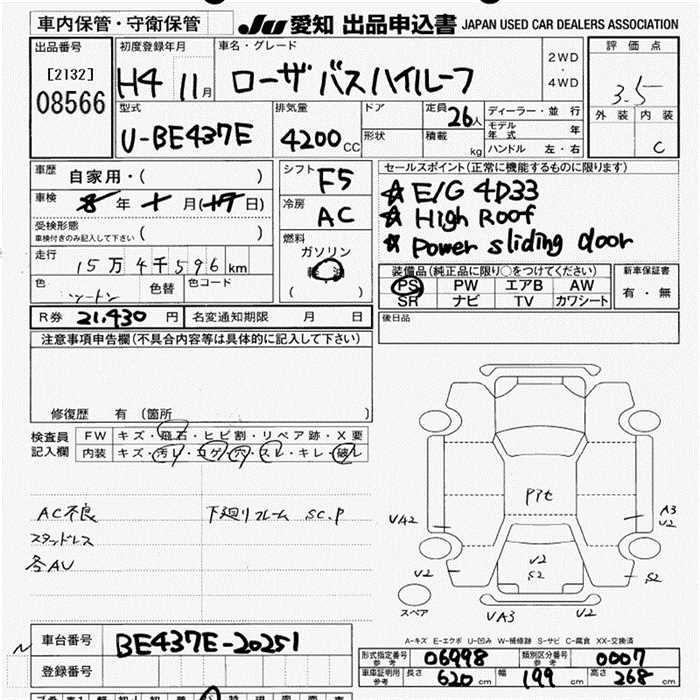 車内保管・守衛保管
JU 愛知 出品申込書 JAPAN USED CAR DEALERS ASSOCIATION
出品番号
[2132]
08566
初度登録年月
H4 11月
車名・グレード
ローザ バスハイルーフ
2WD
・
4WD
評価点
3.5
外装 内装
C
型式
U-BE437E
排気量
4200CC
ドア
形状
定員 26人
積載 kg
ディーラー・並行
モデル年式 年
ハンドル 左・右
車歴 自家用・( )
車検 8年 + 月(17日)
受検形態
車検付きのみ記入して下さい ( )
走行
15万4千596km
色 ツートン 色替 色コード
シフト F5
冷房 AC
燃料
ガソリン
軽油
( )
セールスポイント(正常に機能するものに限ります)
☆ E/G 4D33
☆ High Roof
☆ Power sliding door
装備品(純正品に限り○をつけてください)
PS PW エアB AW
SR ナビ TV カワシート
新車保証書
有・無
R券 21,430円 名変通知期限 月 日
後日品
注意事項申告欄(不具合内容等は具体的に記入して下さい)
修復歴 有(箇所 )
検査員
記入欄
FW キズ・飛石・ヒビ割・リペア跡・X要
内装 キズ・汚レ・コゲ・穴・スレ・キレ・破レ
AC不良 下廻りフレーム SC.P
スタッドレス
各AU
Pit
VA2
A3
V2
V2
S2
V2
S2
スペア
VA3
V2
A-キズ E-エクボ U-凹み W-補修跡 S-サビ C-腐食 XX-交換済
車台番号 BE437E-20251
登録番号
形式指定番号
参考
06998
類別区分番号
参考
0007
車庫証明用
参考
長さ 620cm 幅 199cm 高さ 268cm